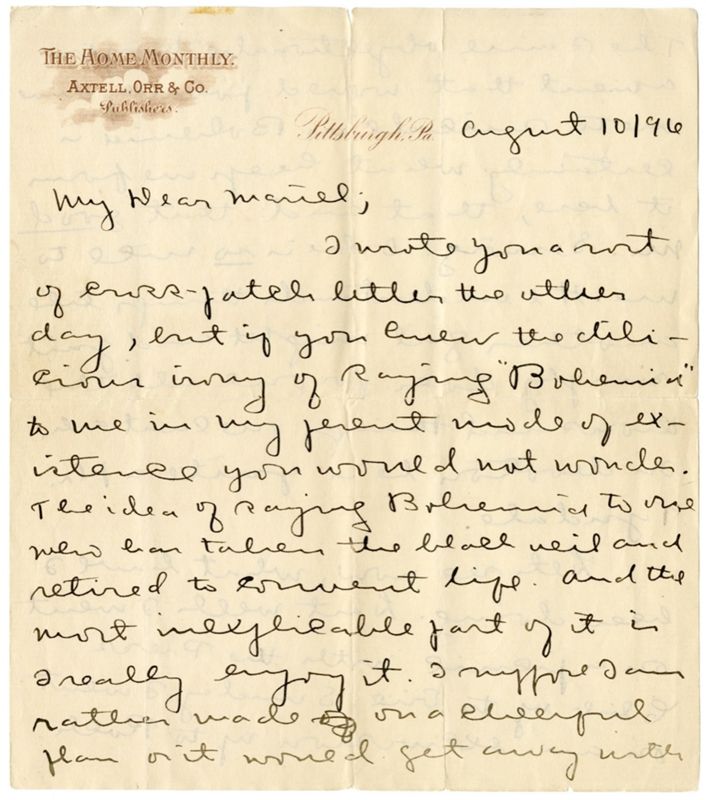 THE HOME MONTHLY.
AXTELL, ORR & CO.
Publishers.
Pittsburgh, Pa. August 10/96
My Dear Mariel;
I wrote you a sort
of cross-patch letter the other
day, but if you knew the deli-
cious irony of saying "Bohemia"
to me in my present mode of ex-
istence you would not wonder.
The idea of saying Bohemia to one
who has taken the black veil and
retired to convent life. And the
most inexplicable part of it is
I really enjoy it. I suppose I am
rather made on a cheerful
plan or it would get away with